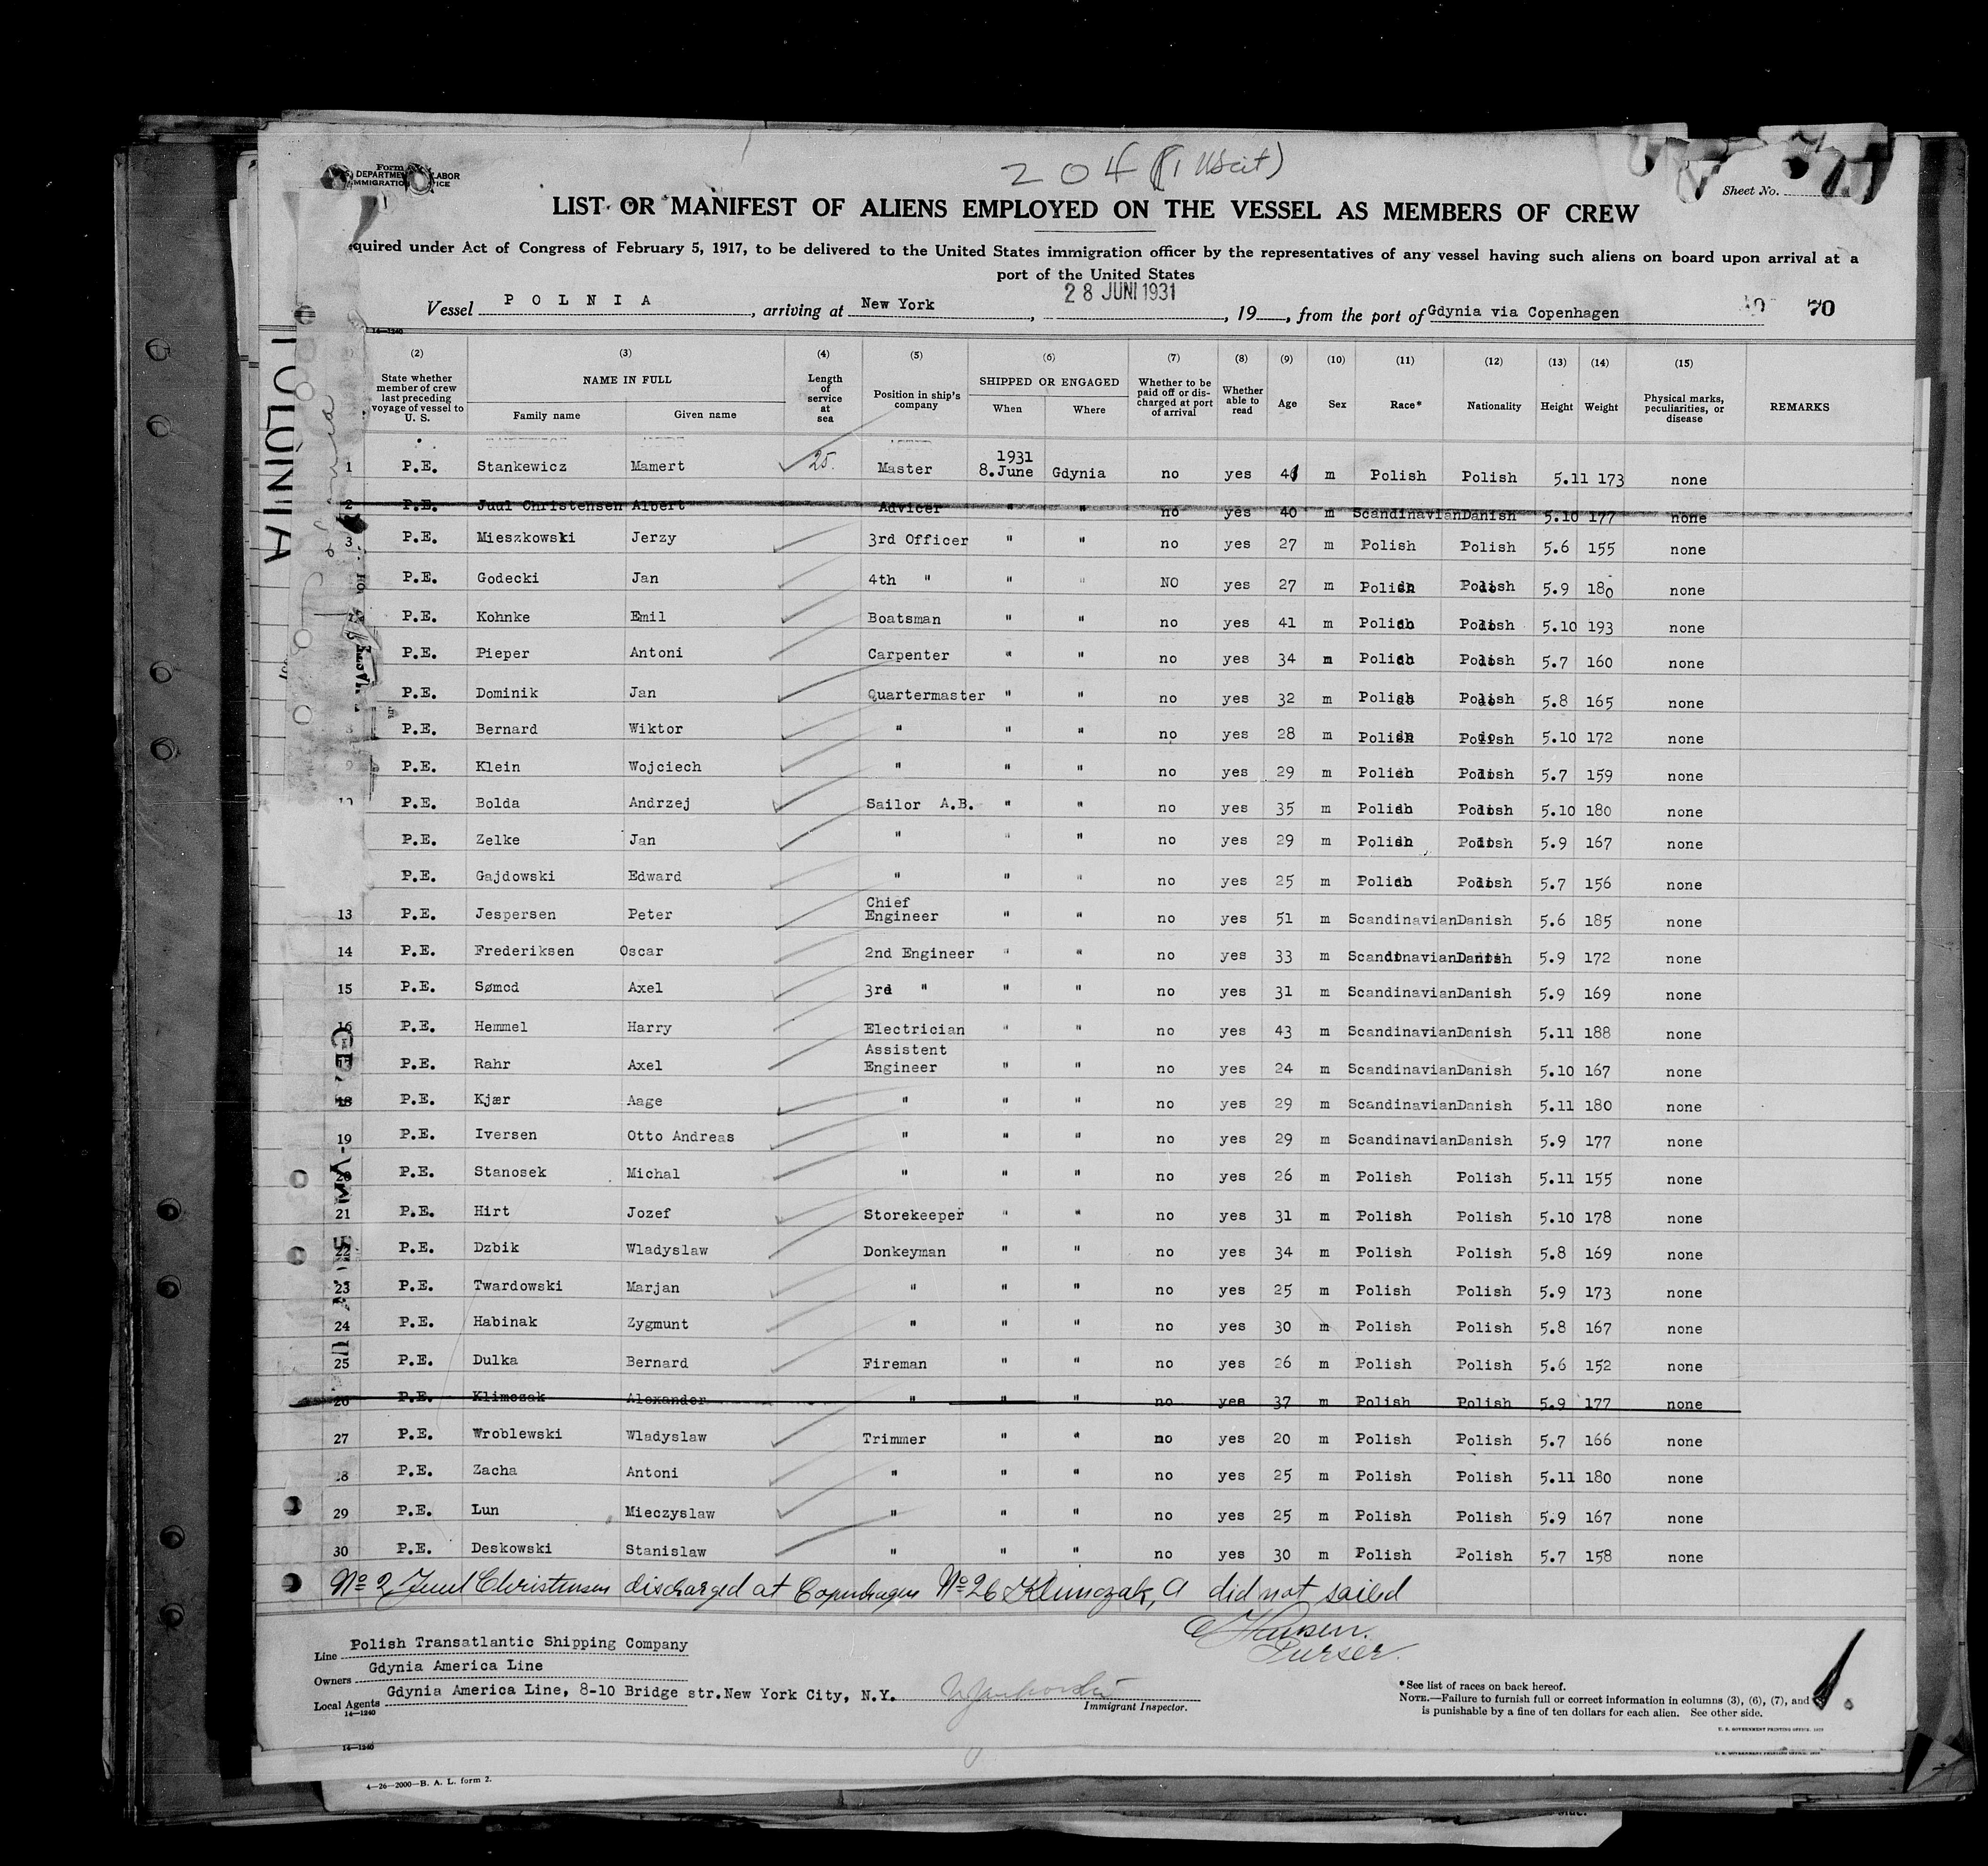 204 (1 UScit)
Form
DEPARTMENT LABOR
IMMIGRATION
Sheet No.
LIST OR MANIFEST OF ALIENS EMPLOYED ON THE VESSEL AS MEMBERS OF CREW
quired under Act of Congress of February 5, 1917, to be delivered to the United States immigration officer by the representatives of any vessel having such aliens on board upon arrival at a
port of the United States
28 JUNI 1931
Vessel P O L N I A, arriving at New York, , 19 , from the port of Gdynia via Copenhagen 70
14—1240
(2) (3) (4) (5) (6) (7) (8) (9) (10) (11) (12) (13) (14) (15)
State whether member of crew last preceding voyage of vessel to U. S. NAME IN FULL Family name Given name Length of service at sea Position in ship's company SHIPPED OR ENGAGED When Where Whether to be paid off or discharged at port of arrival Whether able to read Age Sex Race* Nationality Height Weight Physical marks, peculiarities, or disease REMARKS
1 P.E. Stankewicz Mamert 25. Master 1931 8.June Gdynia no yes 41 m Polish Polish 5.11 173 none
2 P.E. Juul Christensen Albert Advicer " " no yes 40 m Scandinavian Danish 5.10 177 none
3 P.E. Mieszkowski Jerzy 3rd Officer " " no yes 27 m Polish Polish 5.6 155 none
P.E. Godecki Jan 4th " " " NO yes 27 m Polish Polish 5.9 180 none
P.E. Kohnke Emil Boatsman " " no yes 41 m Polish Polish 5.10 193 none
P.E. Pieper Antoni Carpenter " " no yes 34 m Polish Polish 5.7 160 none
P.E. Dominik Jan Quartermaster " " no yes 32 m Polish Polish 5.8 165 none
8 P.E. Bernard Wiktor " " " no yes 28 m Polish Polish 5.10 172 none
9 P.E. Klein Wojciech " " " no yes 29 m Polish Polish 5.7 159 none
10 P.E. Bolda Andrzej Sailor A.B. " " no yes 35 m Polish Polish 5.10 180 none
P.E. Zelke Jan " " " no yes 29 m Polish Polish 5.9 167 none
P.E. Gajdowski Edward " " " no yes 25 m Polish Polish 5.7 156 none
13 P.E. Jespersen Peter Chief Engineer " " no yes 51 m Scandinavian Danish 5.6 185 none
14 P.E. Frederiksen Oscar 2nd Engineer " " no yes 33 m Scandinavian Danish 5.9 172 none
15 P.E. Sømod Axel 3rd " " " no yes 31 m Scandinavian Danish 5.9 169 none
16 P.E. Hemmel Harry Electrician " " no yes 43 m Scandinavian Danish 5.11 188 none
17 P.E. Rahr Axel Assistent Engineer " " no yes 24 m Scandinavian Danish 5.10 167 none
18 P.E. Kjær Aage " " " no yes 29 m Scandinavian Danish 5.11 180 none
19 P.E. Iversen Otto Andreas " " " no yes 29 m Scandinavian Danish 5.9 177 none
20 P.E. Stanosek Michal " " " no yes 26 m Polish Polish 5.11 155 none
21 P.E. Hirt Jozef Storekeeper " " no yes 31 m Polish Polish 5.10 178 none
22 P.E. Dzbik Wladyslaw Donkeyman " " no yes 34 m Polish Polish 5.8 169 none
23 P.E. Twardowski Marjan " " " no yes 25 m Polish Polish 5.9 173 none
24 P.E. Habinak Zygmunt " " " no yes 30 m Polish Polish 5.8 167 none
25 P.E. Dulka Bernard Fireman " " no yes 26 m Polish Polish 5.6 152 none
26 P.E. Klimczak Alexander " " " no yes 37 m Polish Polish 5.9 177 none
27 P.E. Wroblewski Wladyslaw Trimmer " " no yes 20 m Polish Polish 5.7 166 none
28 P.E. Zacha Antoni " " " no yes 25 m Polish Polish 5.11 180 none
29 P.E. Lun Mieczyslaw " " " no yes 25 m Polish Polish 5.9 167 none
30 P.E. Deskowski Stanislaw " " " no yes 30 m Polish Polish 5.7 158 none
No 2 Juul Christensen discharged at Copenhagen No 26 Klimczak, A did not sailed
Hansen.
Purser.
Line Polish Transatlantic Shipping Company
Owners Gdynia America Line
Local Agents Gdynia America Line, 8-10 Bridge str.New York City, N.Y.
14—1240
Immigrant Inspector.
*See list of races on back hereof.
NOTE.—Failure to furnish full or correct information in columns (3), (6), (7), and
is punishable by a fine of ten dollars for each alien. See other side.
U. S. GOVERNMENT PRINTING OFFICE: 1929
14—1240
4—26—2000—B. A. L. form 2.